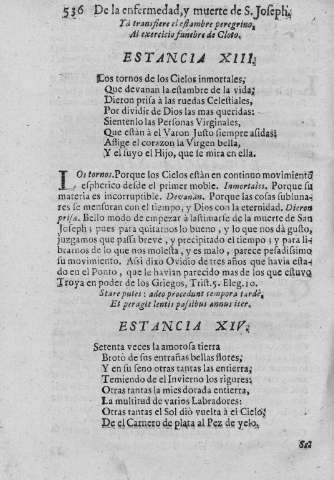 536 De la enfermedad, y muerte de S. Joseph.
Ya transfiere el estambre peregrino,
Al exercicio funebre de Cloto.
ESTANCIA XIII.
Los tornos de los Cielos inmortales,
Que devanan la estambre de la vida;
Dieron prisa à las ruedas Celestiales,
Por dividir de Dios las mas queridas:
Sientenlo las Personas Virginales,
Que estàn à el Varon Justo siempre asidas:
Aflige el corazon la Virgen bella,
Y el suyo el Hijo, que se mira en ella.
Los tornos. Porque los Cielos estàn en continuo movimiento
espherico desde el primer moble. Inmortales. Porque su
materia es incorruptible. Devanan. Porque las cosas sublunares
res se mensuran con el tiempo, y Dios con la eternidad. Dieron
prisa. Bello modo de empezar à lastimarse de la muerte de San
Joseph; pues para quitarnos lo bueno, y lo que nos dà gusto,
juzgamos que passa breve, y precipitado el tiempo; y para librarnos
brarnos de lo que nos molesta, y es malo, parece pesadissimo
su movimiento. Assi dixo Ovidio de tres años que havia estado
do en el Ponto, que le havian parecido mas de los que estuvo
Troya en poder de los Griegos, Trist. 5. Eleg. 10.
Stare putes: adeo procedunt tempora tardè,
Et peragit lentis passibus annus iter.
ESTANCIA XIV.
Setenta veces la amorosa tierra
Brotò de sus entrañas bellas flores,
Y en su seno otras tantas las entierra;
Temiendo de el Invierno los rigores:
Otras tantas la mies dorada entierra,
La multitud de varios Labradores:
Otras tantas el Sol diò vuelta à el Cielo,
De el Carnero de plata al Pez de yelo.